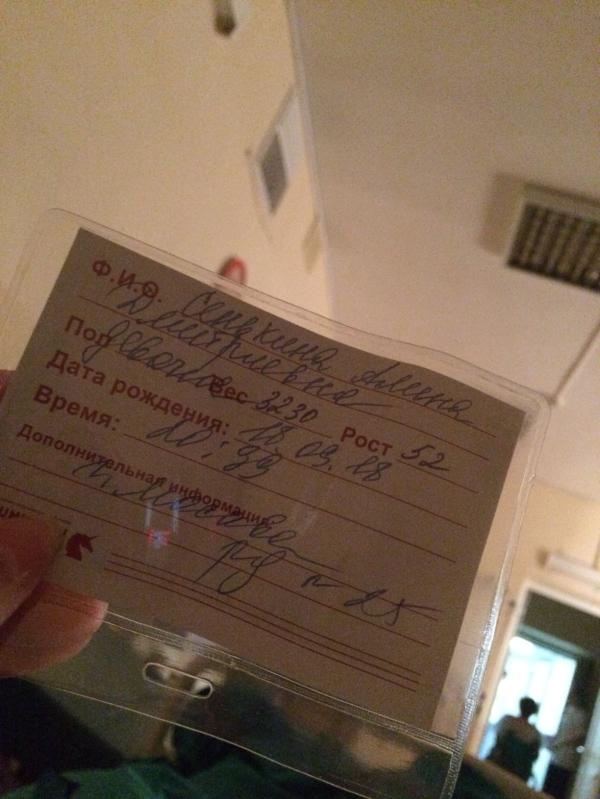 Ф.И.О. Сенькина Алина
Дмитриевна
Пол девочка Вес 3230 Рост 52
Дата рождения: 18.09.18
Время:
Дополнительная информация:
г. Москва
РД № 25